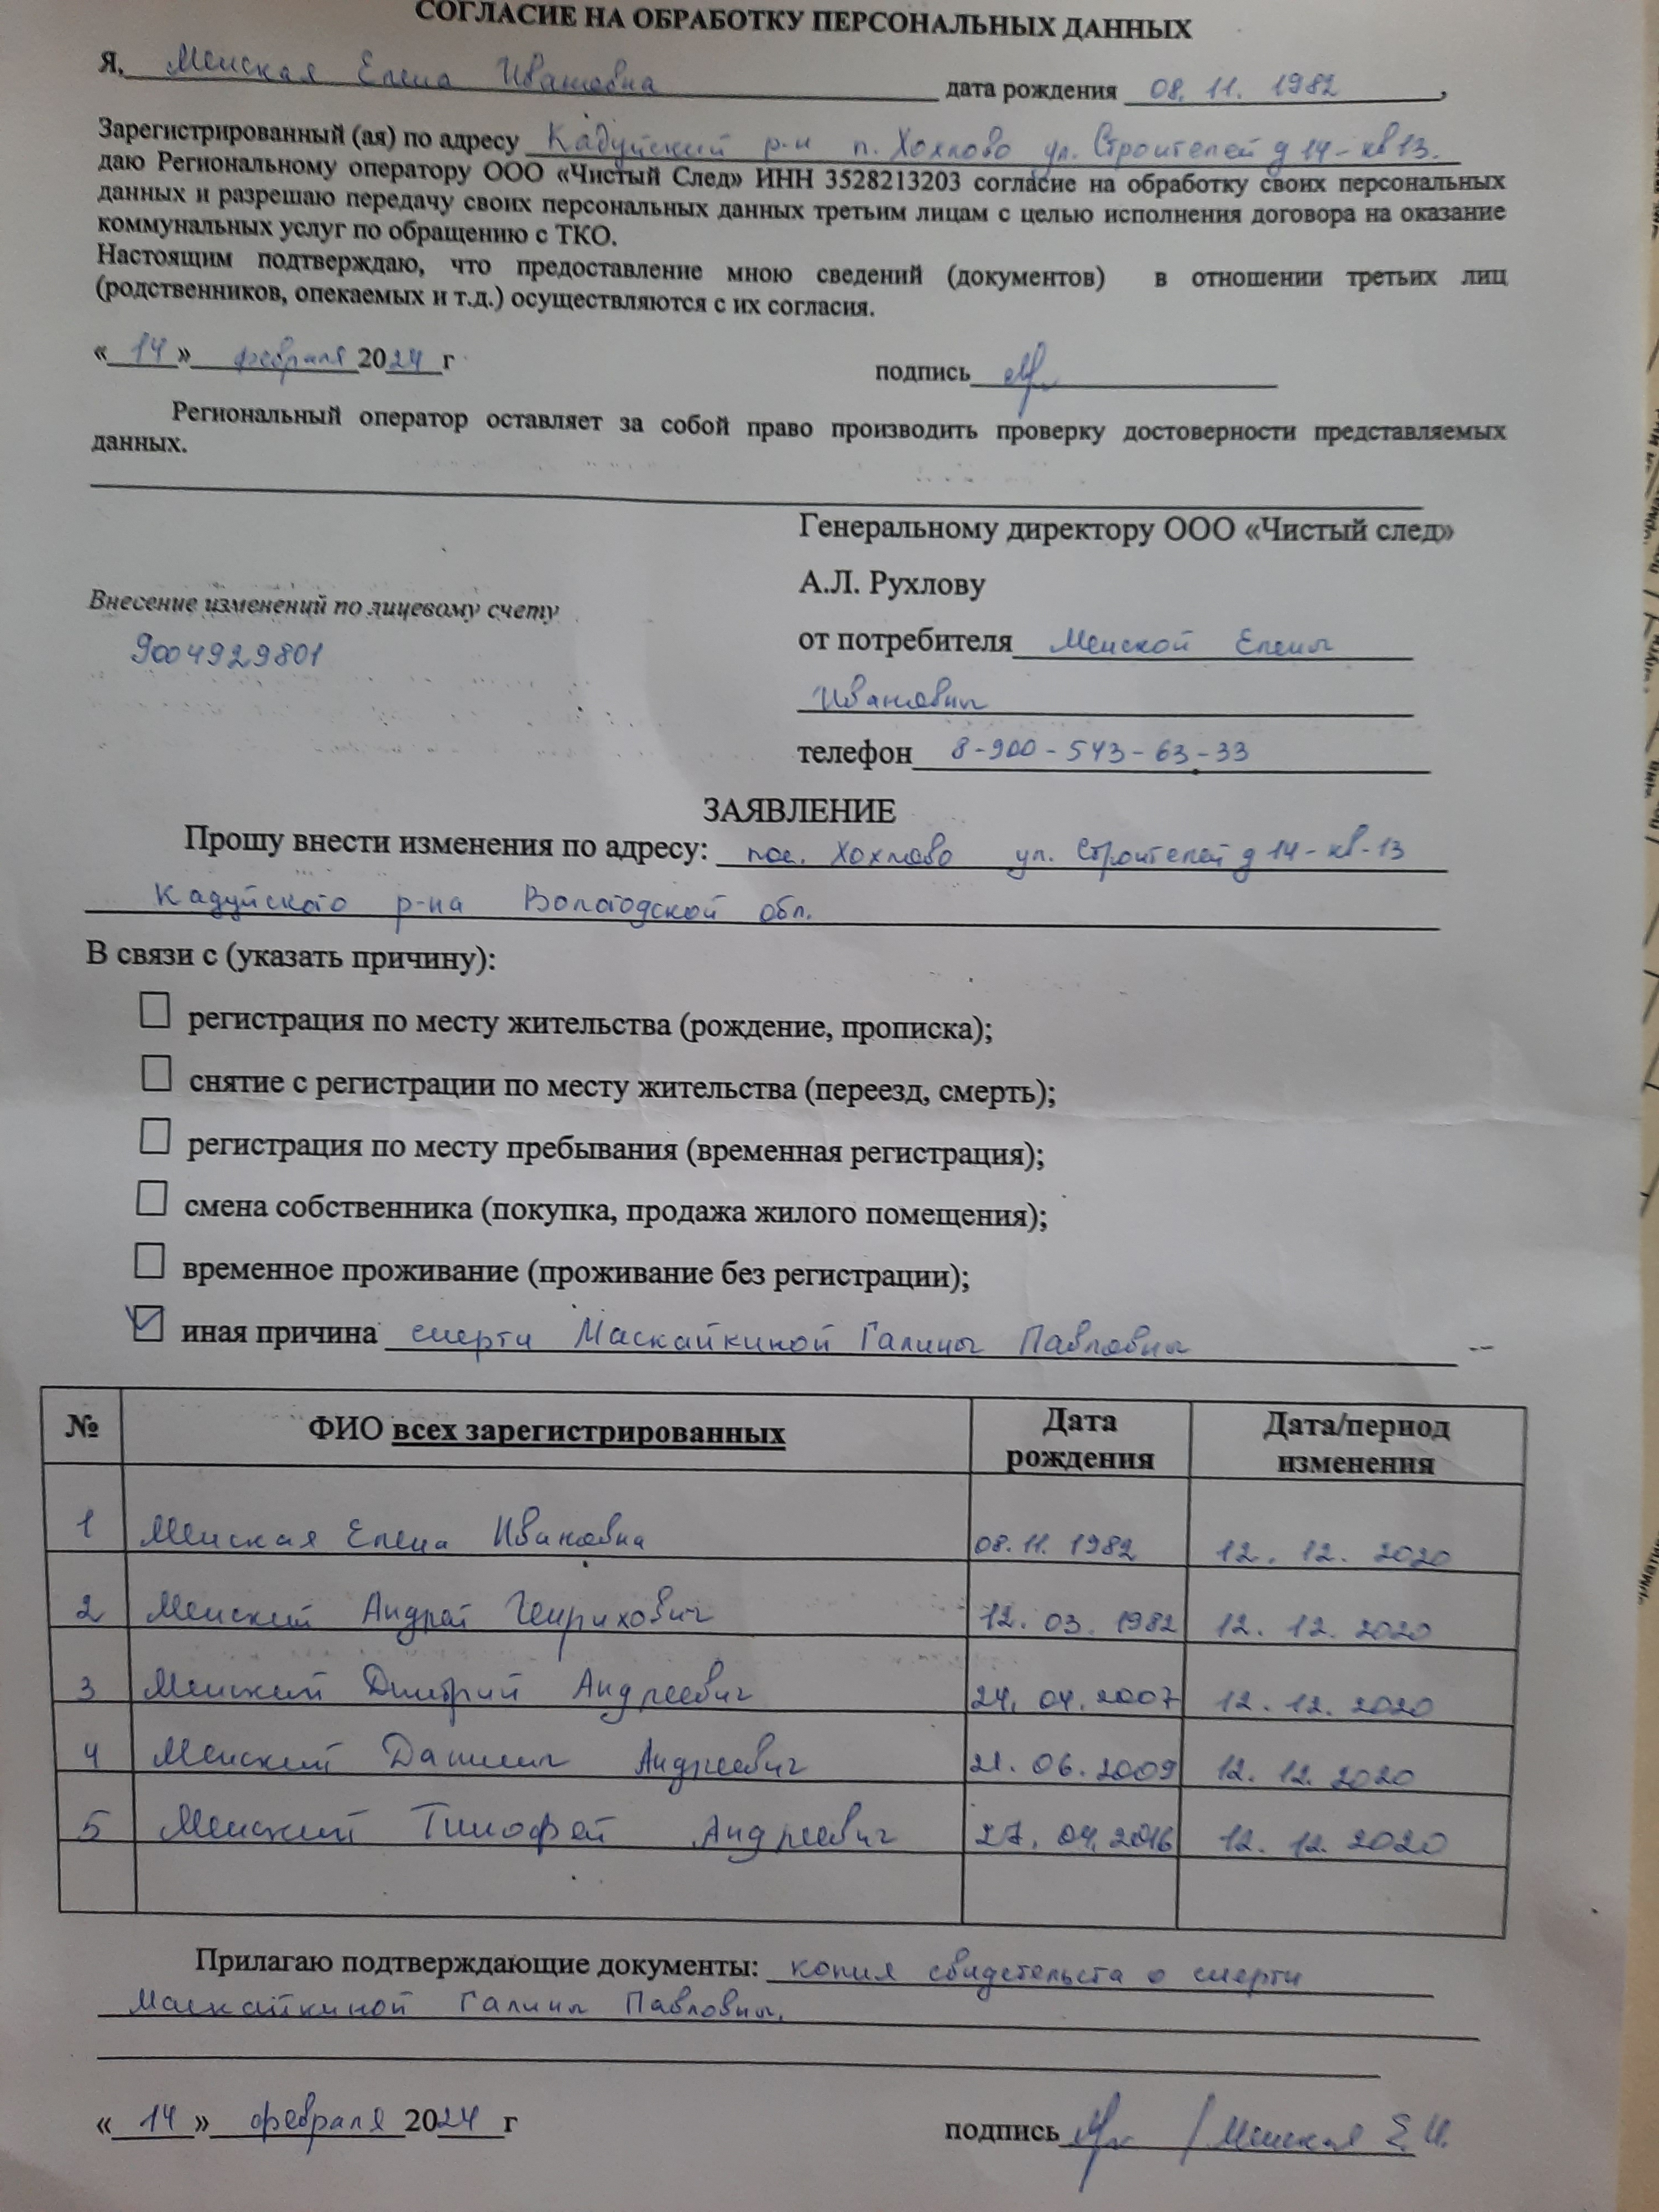 СОГЛАСИЕ НА ОБРАБОТКУ ПЕРСОНАЛЬНЫХ ДАННЫХ
Я, Менская Елена Ивановна дата рождения 08. 11. 1982,
Зарегистрированный (ая) по адресу Кадуйский р-н п. Хохлово ул. Строителей д 14 - кв 13.
даю Региональному оператору ООО «Чистый След» ИНН 3528213203 согласие на обработку своих персональных
данных и разрешаю передачу своих персональных данных третьим лицам с целью исполнения договора на оказание
коммунальных услуг по обращению с ТКО.
Настоящим подтверждаю, что предоставление мною сведений (документов) в отношении третьих лиц
(родственников, опекаемых и т.д.) осуществляются с их согласия.
«14» февраля 2024 г подпись
Региональный оператор оставляет за собой право производить проверку достоверности представляемых
данных.
Генеральному директору ООО «Чистый след»
А.Л. Рухлову
Внесение изменений по лицевому счету
9004929801
от потребителя Менской Елены
Ивановны
телефон 8-900-543-63-33
ЗАЯВЛЕНИЕ
Прошу внести изменения по адресу: пос. Хохлово ул. Строителей д 14 - кв-13
Кадуйского р-на Вологодской обл.
В связи с (указать причину):
регистрация по месту жительства (рождение, прописка);
снятие с регистрации по месту жительства (переезд, смерть);
регистрация по месту пребывания (временная регистрация);
смена собственника (покупка, продажа жилого помещения);
временное проживание (проживание без регистрации);
иная причина смерти Маскайкиной Галины Павловны
№ ФИО всех зарегистрированных Дата рождения Дата/период изменения
1 Менская Елена Ивановна 08. 11. 1982 12. 12. 2020
2 Менский Андрей Генрихович 12. 03. 1982 12. 12. 2020
3 Менский Дмитрий Андреевич 24. 04. 2007 12. 12. 2020
4 Менский Даниил Андреевич 21. 06. 2009 12. 12. 2020
5 Менский Тимофей Андреевич 27. 04. 2016 12. 12. 2020
Прилагаю подтверждающие документы: копия свидетельста о смерти
Маскайкиной Галины Павловны.
«14» февраля 2024 г подпись / Менская Е. И.